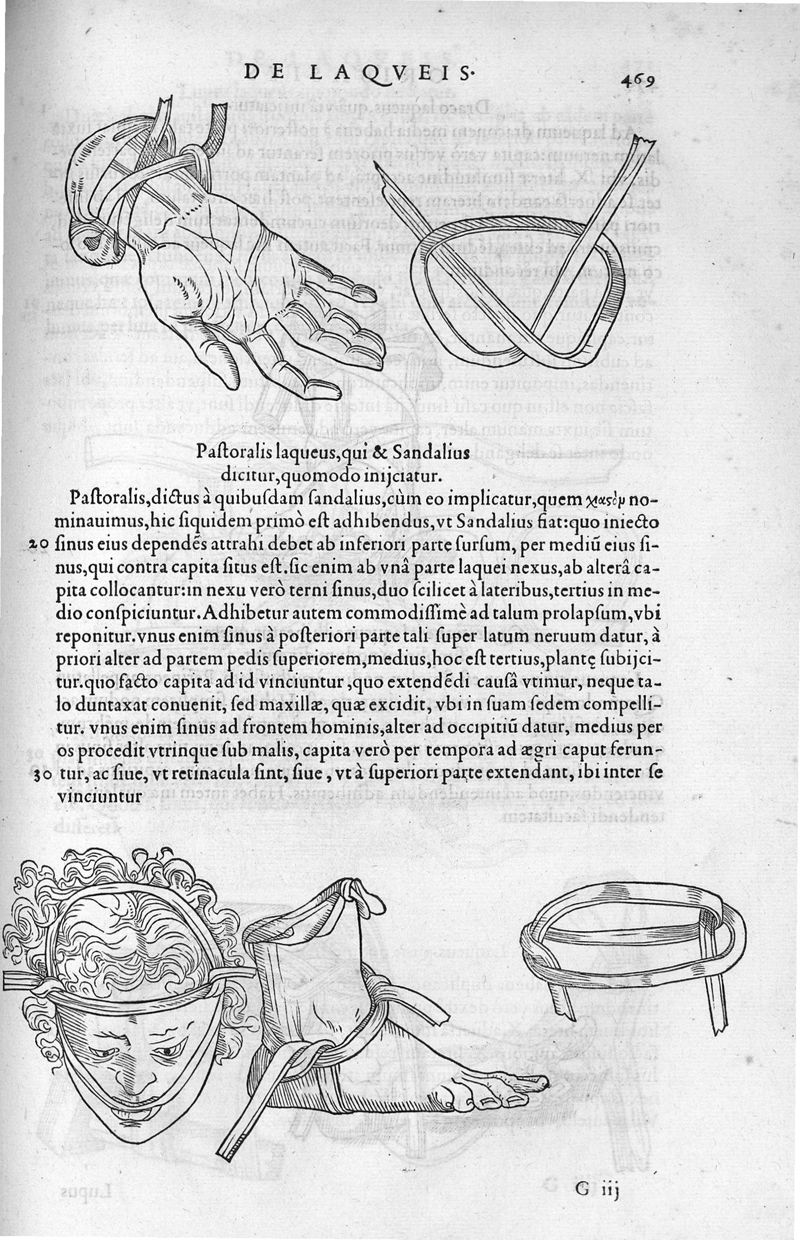 DE LAQVEIS·
469
Paſtoralis laqueus,qui & Sandalius
dicitur,quomodo inijciatur.
Paſtoralis,dictus à quibuſdam ſandalius,cùm eo implicatur,quem no-
minauimus,hic ſiquidem primò eſt adhibendus,vt Sandalius fiat:quo iniecto
20 ſinus eius dependẽs attrahi debet ab inferiori parte ſurſum, per mediũ eius ſi-
nus,qui contra capita ſitus eſt.ſic enim ab vnâ parte laquei nexus,ab alterâ ca-
pita collocantur:in nexu verò terni ſinus,duo ſcilicet à lateribus,tertius in me-
dio conſpiciuntur.Adhibetur autem commodiſſimè ad talum prolapſum,vbi
reponitur.vnus enim ſinus à poſteriori parte tali ſuper latum neruum datur, à
priori alter ad partem pedis ſuperiorem,medius,hoc eſt tertius,plantę ſubijci-
tur.quo facto capita ad id vinciuntur,quo extendẽdi cauſâ vtimur, neque ta-
lo duntaxat conuenit, ſed maxillæ, quæ excidit, vbi in ſuam ſedem compelli-
tur. vnus enim ſinus ad frontem hominis,alter ad occipitiũ datur, medius per
os procedit vtrinque ſub malis, capita verò per tempora ad ægri caput ferun-
30 tur, ac ſiue, vt retinacula ſint, ſiue, vt à ſuperiori parte extendant, ibi inter ſe
vinciuntur
G iij